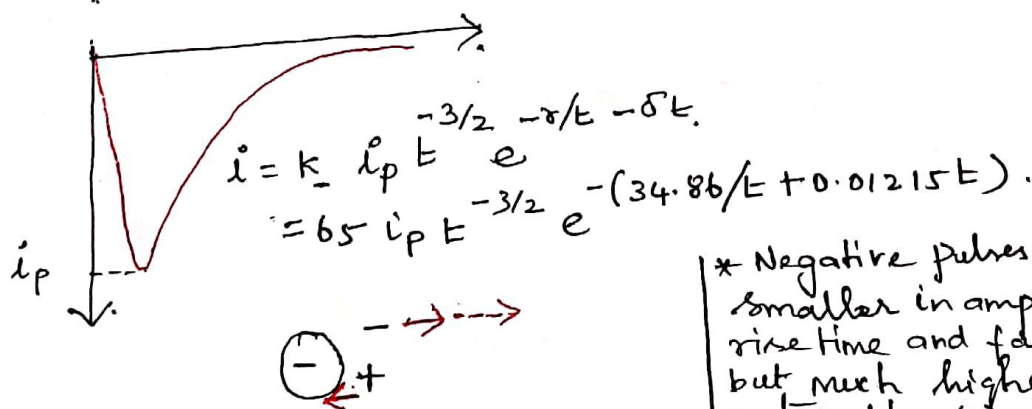 i = k i_p t^{-3/2} e^{-γ/t - δt}.
= 65 i_p t^{-3/2} e^{-(34.86/t + 0.01215t)}.
i_p
* Negative pulses
smaller in amp
rise time and fa
but much highe
- +
-